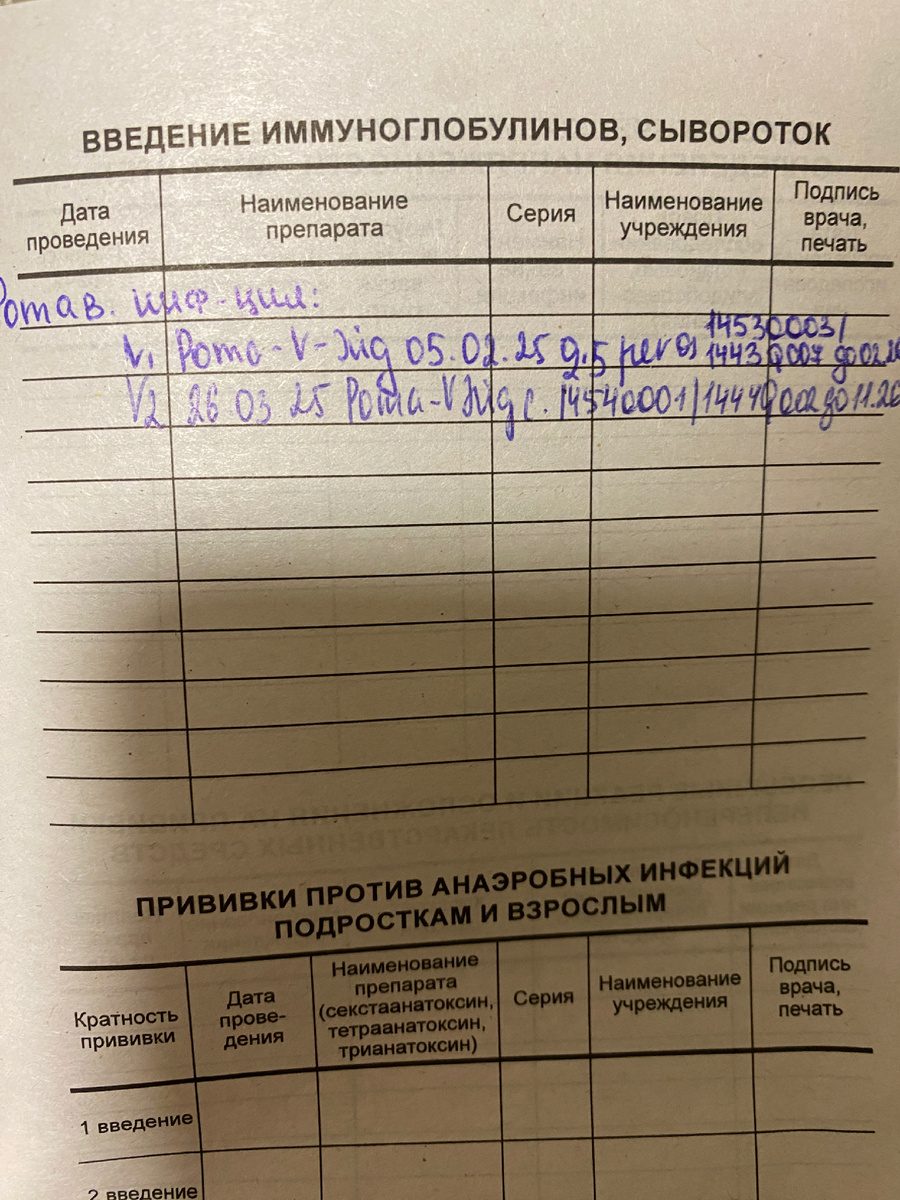 ВВЕДЕНИЕ ИММУНОГЛОБУЛИНОВ, СЫВОРОТОК
Дата проведения
Наименование препарата
Серия
Наименование учреждения
Подпись врача, печать
Ротав. инф-ция:
V1 Рота-V-Эйд 05.02.25 д.5 per os 14530003/
14430007 до 02.26
V2 26 03 25 Рота-V Эйд с. 14540001/14440002 до 11.26
ПРИВИВКИ ПРОТИВ АНАЭРОБНЫХ ИНФЕКЦИЙ
ПОДРОСТКАМ И ВЗРОСЛЫМ
Кратность прививки
Дата прове-дения
Наименование препарата (секстаанатоксин, тетраанатоксин, трианатоксин)
Серия
Наименование учреждения
Подпись врача, печать
1 введение
2 введение